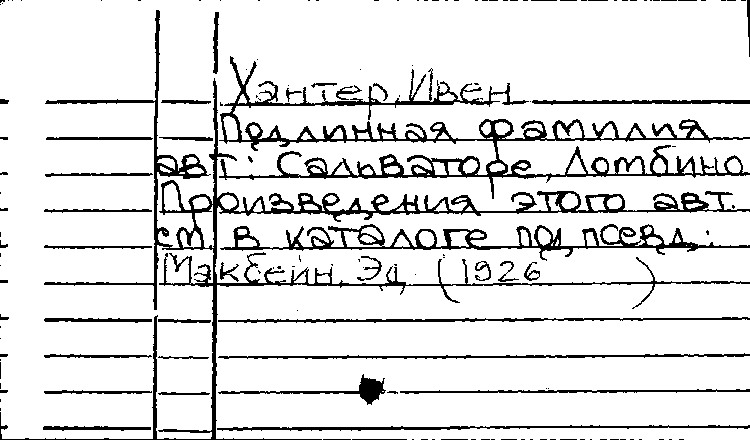 Хантер, Ивен
Подлинная фамилия
авт.: Сальваторе, Ломбино
Произведения этого авт.
см. в каталоге под псевд.:
Макбейн, Эд (1926 )